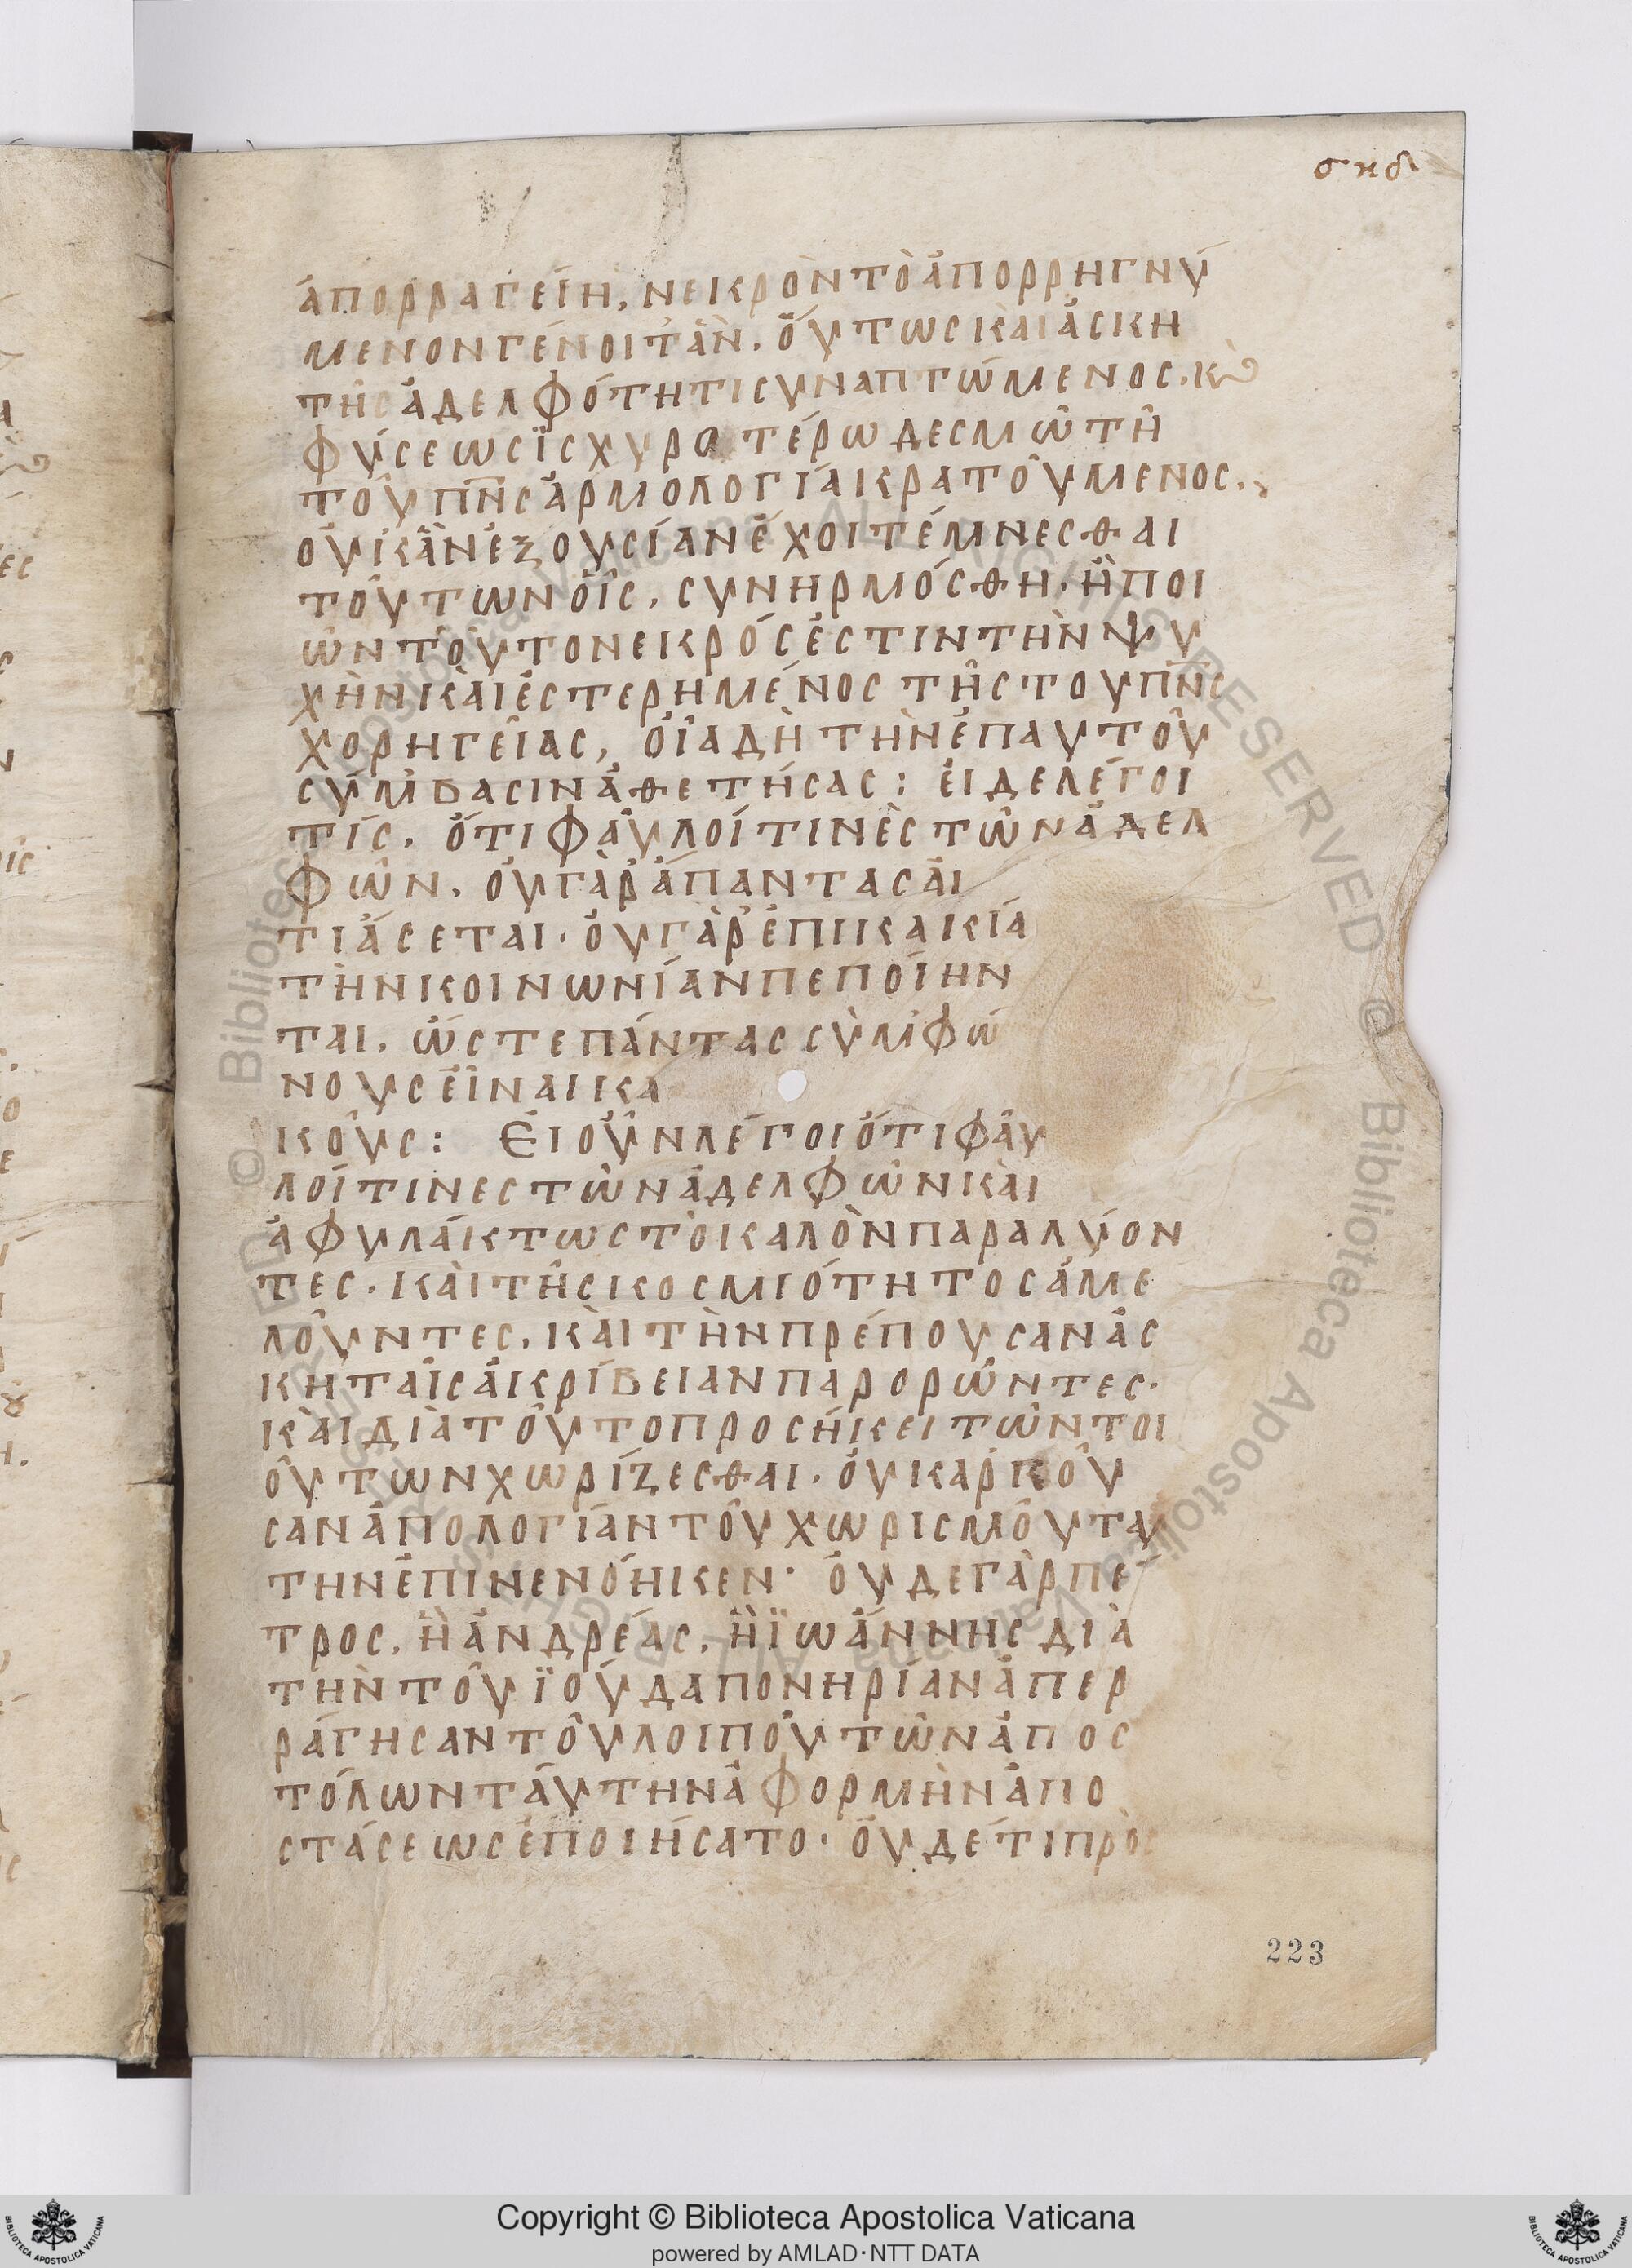 σκδ
ἀπορραγείη, νεκρὸν τὸ ἀπορρηγνύ
μενον γένοιτ ἀν. ὅυτως κὰι ἀσκη
τῆς ἀδελφότητι συναπτώμενος. κ(αι)
φύσεως ϊσχυροτέρω δεσμῶ τῆ
τοῦ πν̅ς ἁρμολογίαι κρατούμενος.
ὀυκ ἀν ἐξουσίαν ἔχοι τέμνεσθαι
τούτων ὁῖς, συνηρμόσθη. ἢ ποι
ῶν τοῦτο νεκρός ἐστιν τὴν ψυ
χὴν κὰι ἐστερημένος τῆς του πν̅ς
χορηγείας, ὁῖα δὴ τὴν ἐπ αυτοῦ
σύμβασιν ἀθετήσας: ἐι δε λέγοι
τίς. ὅτι φᾶυλοί τινὲς τῶν ἀδελ
φῶν. ὀυ γὰρ ἅπαντας ἀι
τιάσεται. ὀυ γὰρ ἐπι κακία
τὴν κοινωνίαν πεποίην
ται, ὥστε πάντας συμφώ
νους εῖναι κα
κοῦς: Ἐι οῦν λέγοι ὅτι φᾶυ
λοί τινες τῶν ἀδελφῶν κὰι
ἀφυλάκτως τὸ καλὸν παραλύον
τες. κὰι τῆς κοσμιότητος ἀμε
λοῦντες. κὰι τὴν πρέπουσαν ἀσ
κηταῖς ἀκρίβειαν παρορῶντες.
κὰι διὰ τοῦτο προσήκει τῶν τοι
ούτων χωρίζεσθαι. ὀυκ αρκοῦ
σαν ἀπολογίαν τοῦ χωρισμοῦ ταυ
την ἐπινενόηκεν. ὀυδε γὰρ πε
τρος. ἢ ἀνδρέας. ἢ ϊωάννης διὰ
τὴν τοῦ ϊούδα πονηρίαν ἀπερ
ράγησαν τοῦ λοιποῦ τῶν ἀποσ
τόλων ταύτην ἀφορμὴν ἀπο
στάσεως ἐποιήσατο. ὀυδέ τι πρὸς
223
Copyright © Biblioteca Apostolica Vaticana
powered by AMLAD·NTT DATA